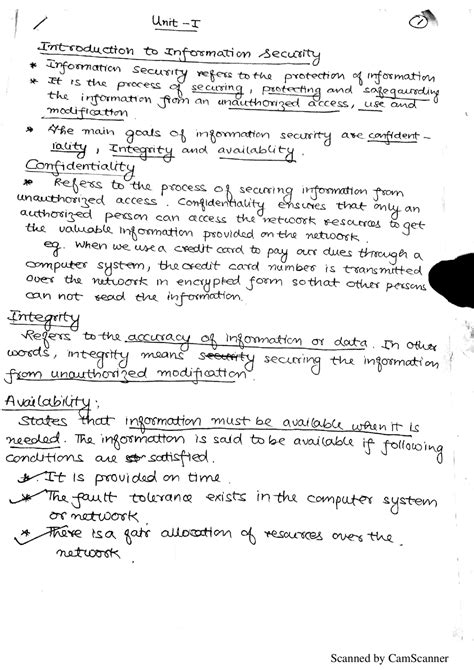 Unit - I
1
Introduction to Information Security
* Information Security refers to the protection of information
* It is the process of securing, protecting and safeguarding
the information from an unauthorized access, use and
modification.
* The main goals of information security are confident-
iality, Integrity and availability.
Confidentiality
* Refers to the process of securing information from
unauthorized access. Confidentiality ensures that only an
authorized person can access the network resources to get
the valuable information provided on the network.
eg. When we use a credit card to pay our dues through a
computer system, the credit card number is transmitted
over the network in encrypted form so that other persons
can not read the information.
Integrity
Refers to the accuracy of information or data. In other
words, integrity means security securing the information
from unauthorized modification.
Availability:
States that information must be available when it is
needed. The information is said to be available if following
conditions are satisfied.
* It is provided on time.
* The fault tolerance exists in the computer system
or network.
* There is a fair allocation of resources over the
network.
Scanned by CamScanner